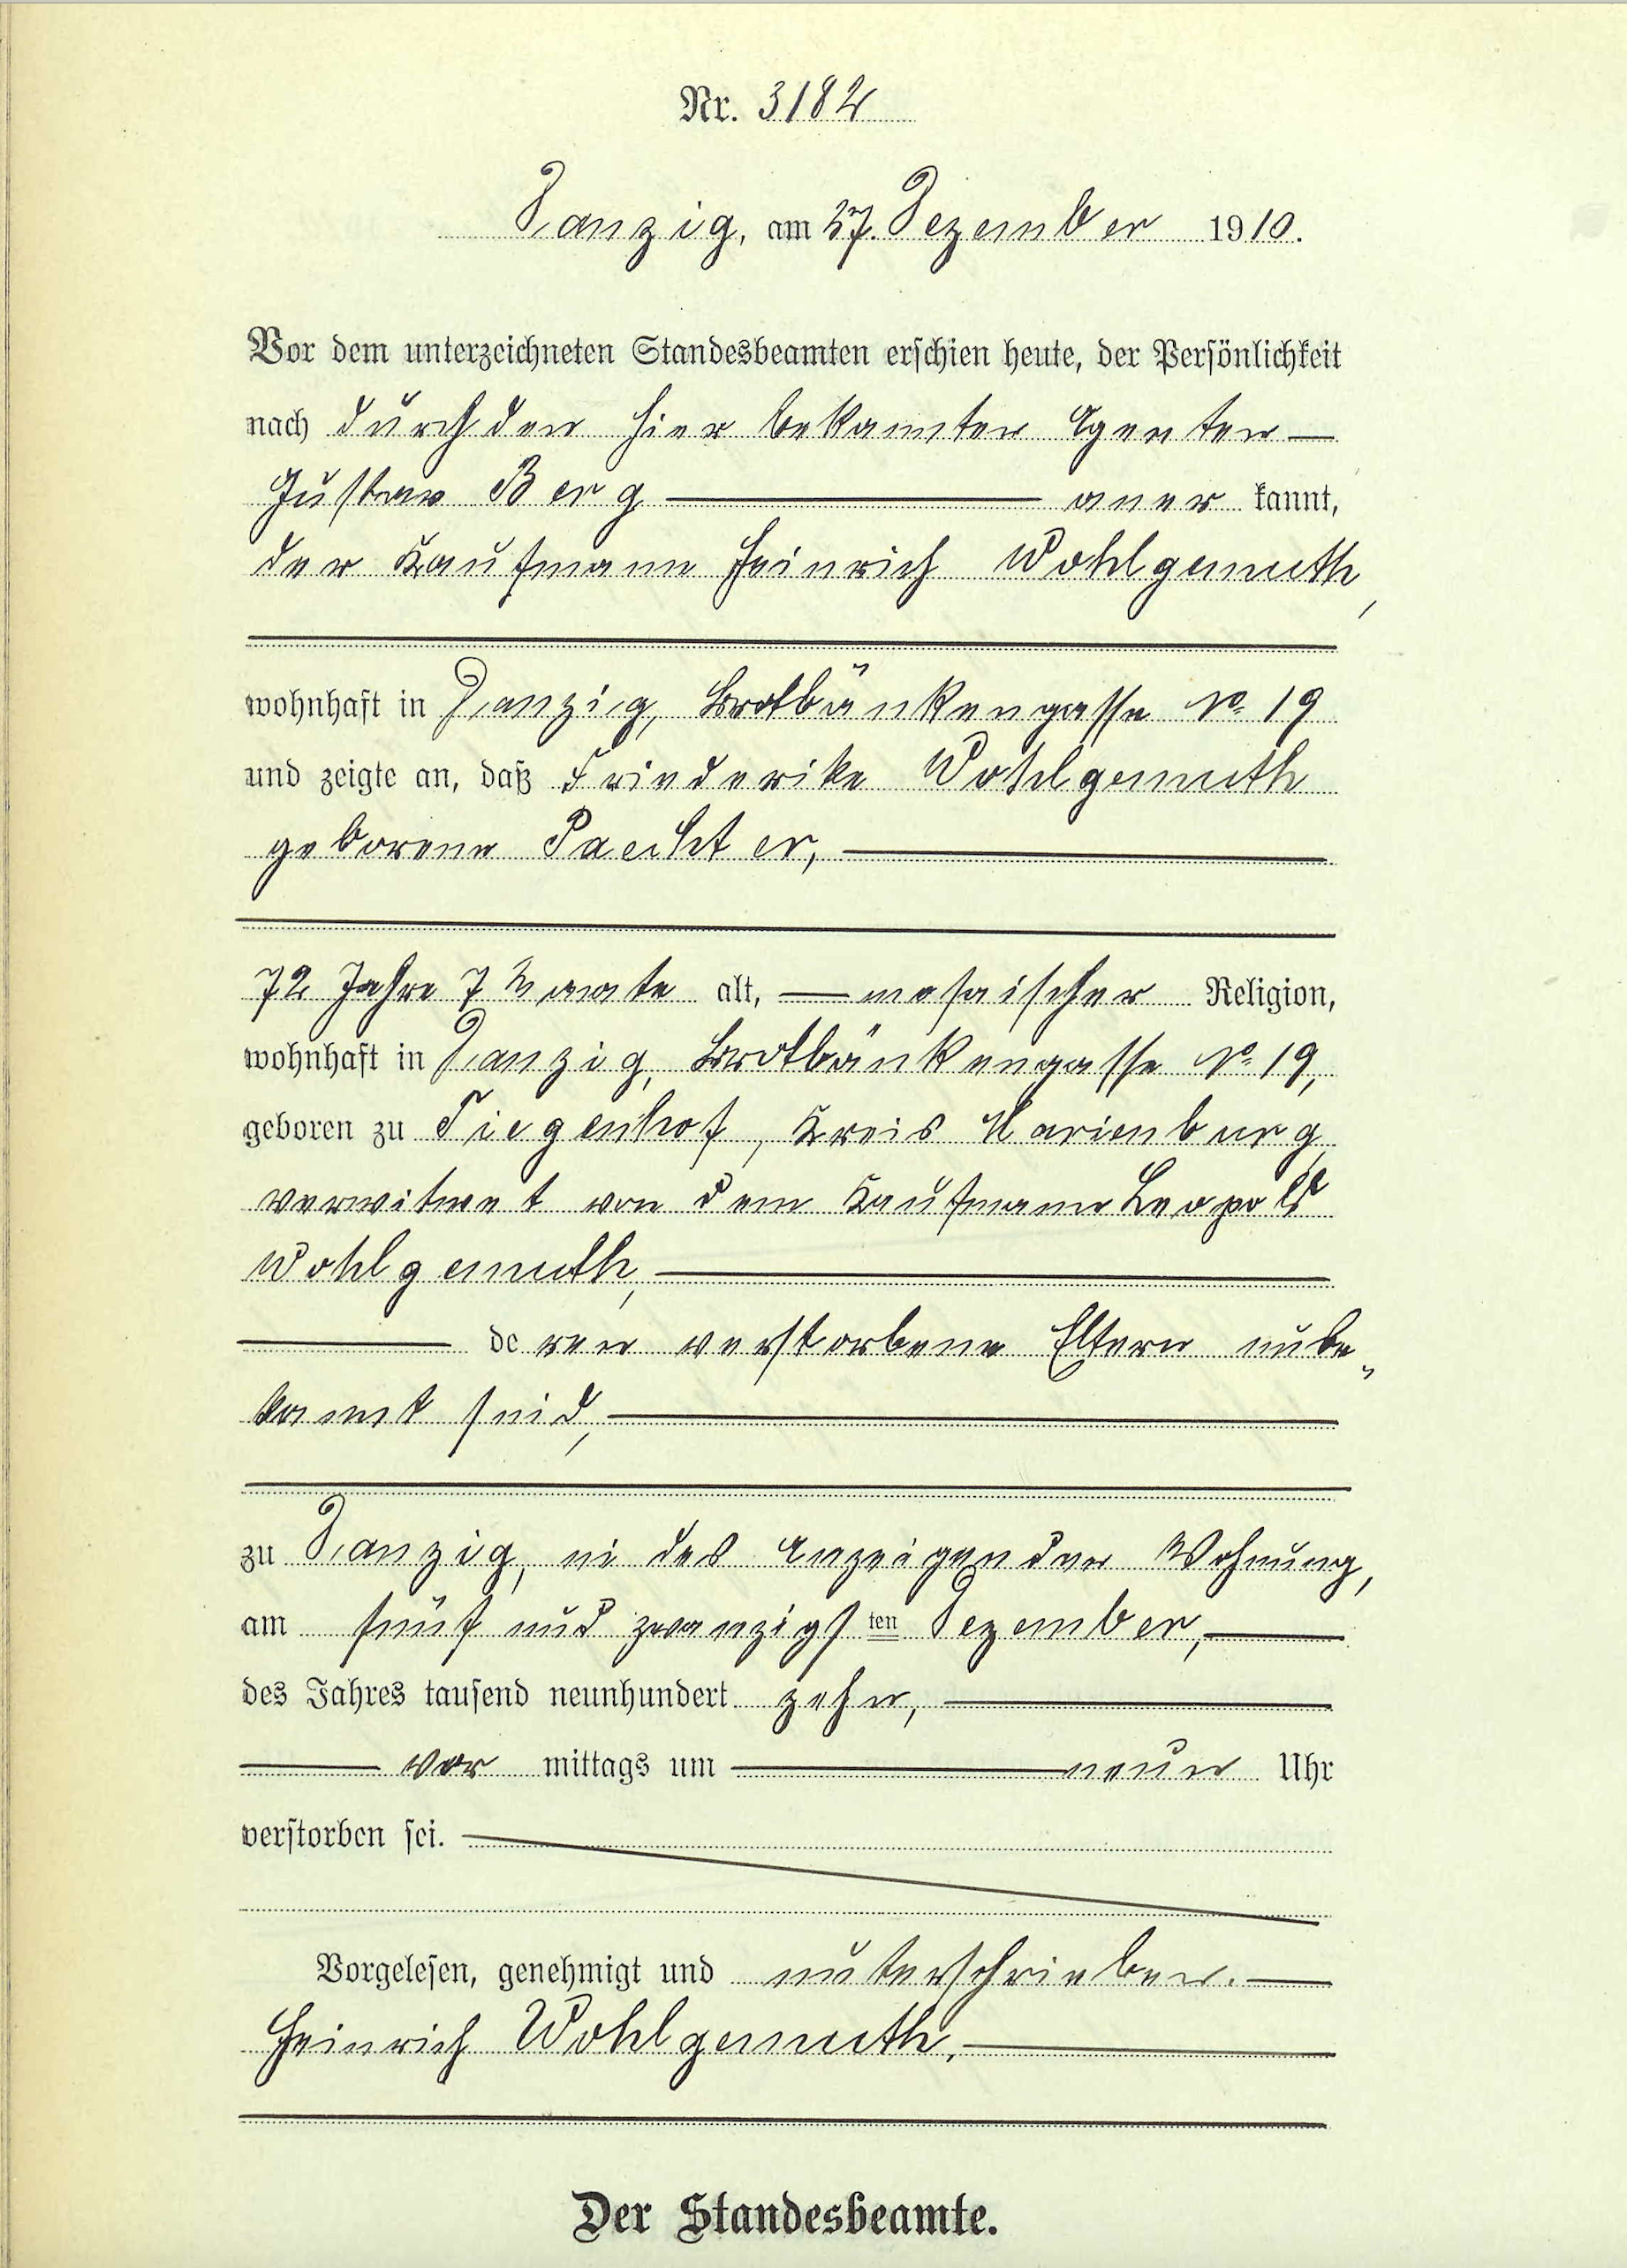 Nr. 3182
Danzig, am 27. Dezember 1910.
Vor dem unterzeichneten Standesbeamten erschien heute, der Persönlichkeit
nach durch den hier bekannten Agenten —
Gustav Berg — aner kannt,
der Kaufmann Heinrich Wohlgemuth,
wohnhaft in Danzig, Brotbänkengasse No 19
und zeigte an, daß Friederike Wohlgemuth
geborene Paechter, —
72 Jahre 7 Monate alt, — mosaischer Religion,
wohnhaft in Danzig, Brotbänkengasse No 19,
geboren zu Tiegenhof, Kreis Marienburg,
verwitwet von dem Kaufmann Leopold
Wohlgemuth, —
— de ren verstorbene Eltern unbe„
kannt sind, —
zu Danzig, in des Anzeigenden Wohnung,
am fünf und zwanzigs ten Dezember, —
des Jahres tausend neunhundert zehn, —
— vor mittags um — neun Uhr
verstorben sei. —
Vorgelesen, genehmigt und unterschrieben. —
Heinrich Wohlgemuth. —
Der Standesbeamte.